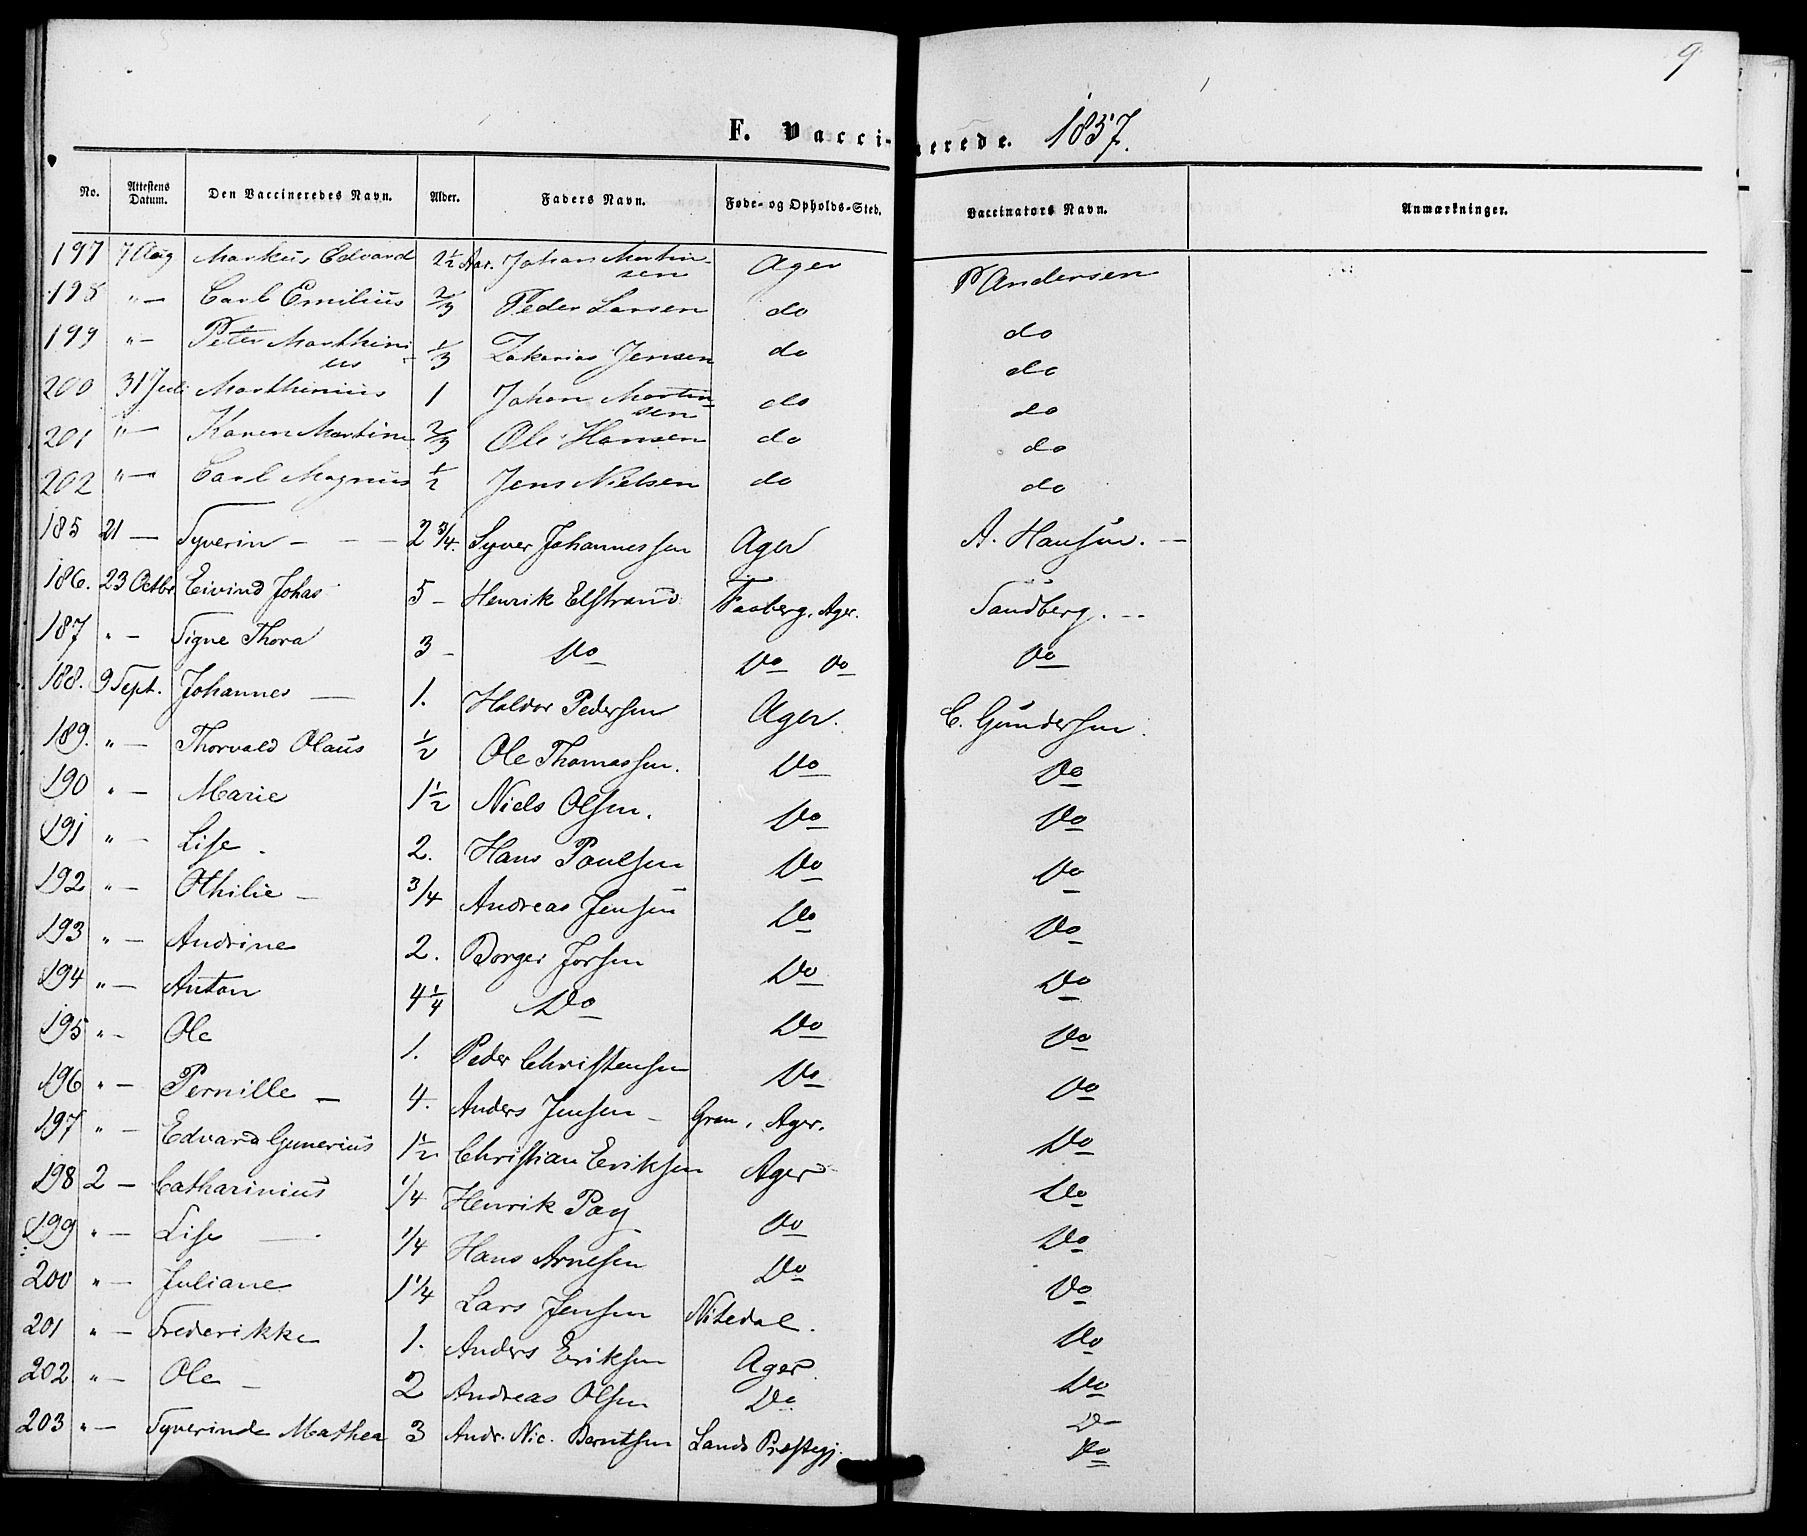 9
F. Vaccinerede. 1857.
No. Attestens Datum. Den Vaccineredes Navn. Alder. Faders Navn. Føde- og Opholds-Sted. Vaccinators Navn. Anmærkninger.
197 7 Aug Markus Edvard 2½ Aar. Johan Martinsen Ager P Andersen
198 " — Carl Emilius 2/3 Peder Larsen do do
199 " — Peter Marthinius 1/3 Zakarias Jensen do do
200 31 Juli Marthinius 1 Johan Martinsen do do
201 " — Karen Martine 2/3 Ole Hansen do do
202 " — Carl Magnus ½ Jens Nielsen do do
185 21 — Syverin - - - 2 3/4. Syver Johannessen Ager A. Hansen. —
186. 23 Octbr Eivind Johas 5 - Henrik Elstrand Faaberg. Ager. Sandberg. --
187 " - Signe Thora 3 - Do Do Do Do
188. 9 Sept. Johannes — 1. Haldor Pedersen Ager. C. Gundersen.
189. " — Thorvald Olaus ½ Ole Thomassen. Do Do
190 " — Marie 1½ Niels Olsen. Do Do
191 " — Lise . 2. Hans Paulsen Do Do
192 " — Othilie — 3/4 Andreas Jensen Do Do
193 " — Andrine 2. Borger Jorsen Do Do
194 " — Anton 4¼ Do Do Do
195 " - Ole 1. Peder Christensen Do Do
196 " — Pernille — 4. Anders Jensen — Gran, Ager. Do
197 " — Edvard Gunerius 1½ Christian Eriksen Ager Do
198 2 — Catharinius 1/4 Henrik Pay Do Do
199 " — Lise — . 1/4 Hans Arnesen Do Do
200 " — Juliane 1 1/4 Lars Jensen Nitedal. Do
201 " — Frederikke 1. Anders Eriksen Ager. Do
202 " — Ole — 2 Andreas Olsen Do Do
203 " — Syverinde Mathea 3 Andr. Nic. Berntsen Lands Præstegj. Do
Do